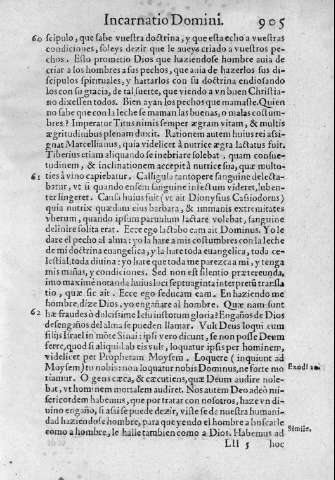 Incarnatio Domini. 905
60 scipulo, que sabe vuestra doctrina, y que esta echo a vuestras
condiciones, soleys dezir que le aueys criado a vuestros pe-
chos. Esto prometio Dios que haziendose hombre auia de
criar a los hombres a sus pechos, que auia de hazerlos sus di-
scipulos spirituales, y hartarlos con su doctrina endiosando
los con su gracia, de tal suerte, que viendo a vn buen Christia-
no dixessen todos. Bien ayan los pechos que mamaste. Quien
no sabe que con la leche se maman las buenas, o malas costum-
bres? Imperator Titus nimis semper ægram vitam, & multis
ægritudinibus plenam duxit. Rationem autem huius rei assi-
gnat Marcellianus, quia videlicet à nutrice ægra lactatus fuit.
Tiberius etiam aliquando se inebriare solebat. quam consue-
tudinem, & inclinationem accepit à nutrice sua, quæ multo-
61 ties à vino capiebatur. Calligula tantopere sanguine delecta-
batur, vt si quando ensem sanguine infectum videret, lub en-
ter lingeret. Causa huius fuit (vt ait Dionysius Casiodorus)
quia nutrix quædam eius barbara, & immanis extremitates
vberum, quando ipsum paruulum lactare volebat, sanguine
delinire solita erat. Ecce ego lactabo eam ait Dominus. Yo le
dare el pecho al alma: yo la hare a mis costumbres con la leche
de mi doctrina euangelica, y la hare toda euangelica, toda ce-
lestial, toda diuina: yo hare que toda me parezca a mi, y tenga
mis mañas, y condiciones. Sed non est silentio prætereunda,
imo maximè notanda huius loci septuaginta interpretũ transla
tio, quæ sic ait. Ecce ego seducam eam. En haziendo me
hombre, dize Dios, yo engañare al hombre. Quæ nam sunt
62 hæ fraudes ò dulcissime Iesu iustorum gloria? Engaños de Dios
desengaños del alma se pueden llamar. Vult Deus loqui cum
filijs Israel in mõte Sinai: ipsi vero dicunt, se non posse Deum
ferre, quod si aliquid ab eis vult, loquatur ipsis per hominem,
videlicet per Prophetam Moysem. Loquere (inquiunt ad
Moysem) tu nobis: non loquatur nobis Dominus, ne forte mo Exodi 20.
riamur. O gens cæca, & cæcutiens, quæ Deum audire nole-
bat, vt hominem mortalem audiret. Nos autem Deo adeò mi-
sericordem habemus, que por tratar con nosotros, haze vn di-
uino engaño, si assi se puede dezir, viste se de nuestra humani-
dad haziendose hombre, para que yendo el hombre a buscarle
como a hombre, le halle tambien como a Dios. Habemus ad Simile.
Lll 5 hoc